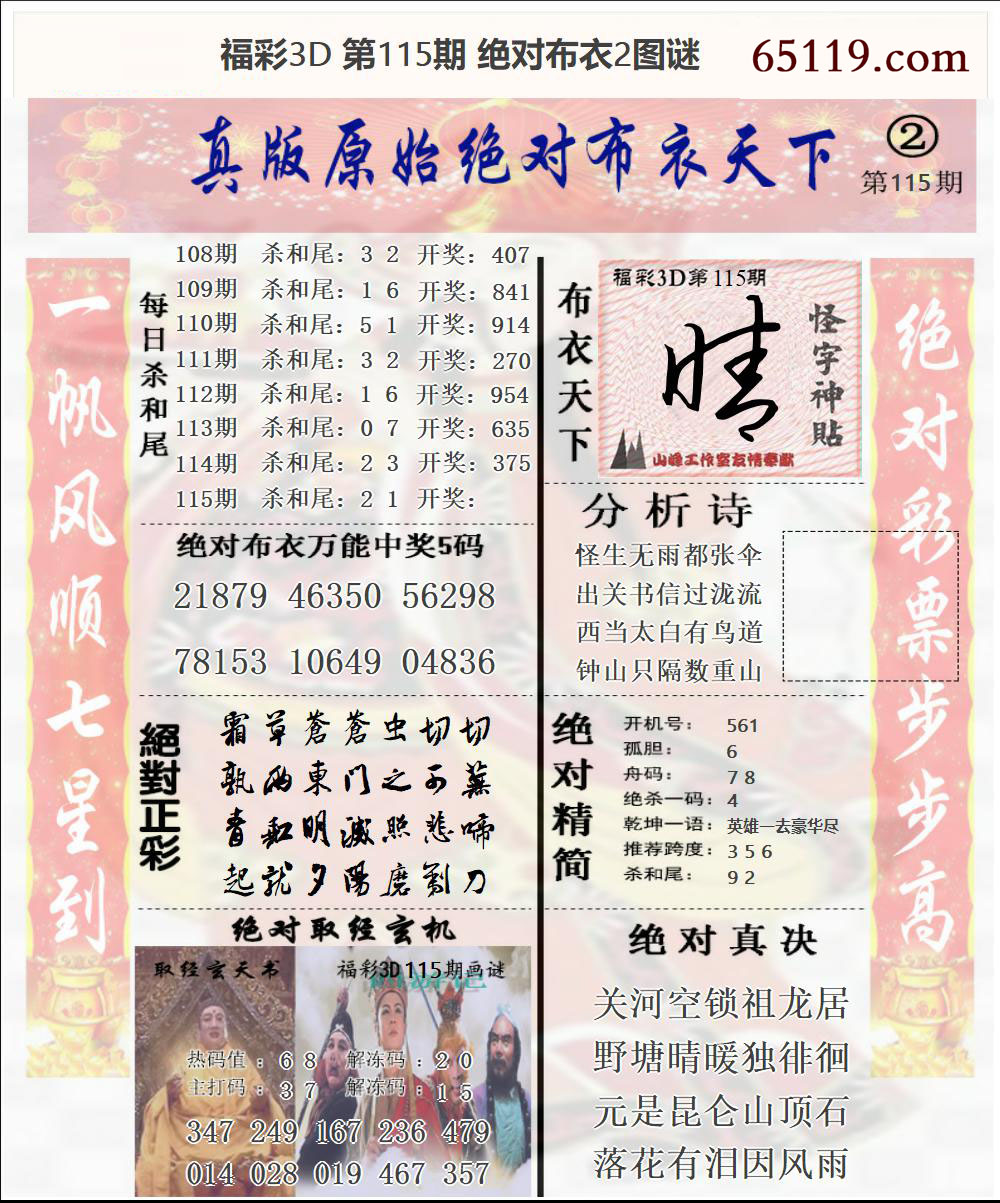 福彩3D 第115期 绝对布衣2图谜 65119.com
真版原始绝对布衣天下
②
第115期
一帆风顺七星到
绝对彩票步步高
每日杀和尾
108期 杀和尾：3 2 开奖：407
109期 杀和尾：1 6 开奖：841
110期 杀和尾：5 1 开奖：914
111期 杀和尾：3 2 开奖：270
112期 杀和尾：1 6 开奖：954
113期 杀和尾：0 7 开奖：635
114期 杀和尾：2 3 开奖：375
115期 杀和尾：2 1 开奖：
绝对布衣万能中奖5码
21879 46350 56298
78153 10649 04836
絕對正彩
霜草蒼蒼虫切切
孰两東門之不蕪
青和明滅照悲啼
起就夕陽磨劉刀
绝对取经玄机
取经玄天书 福彩3D115期画谜
热码值：6 8 解冻码：2 0
主打码：3 7 解冻码：1 5
347 249 167 236 479
014 028 019 467 357
布衣天下
福彩3D第115期
晴
怪字神貼
山峰工作室友情奉献
分析诗
怪生无雨都张伞
出关书信过泷流
西当太白有鸟道
钟山只隔数重山
绝对精简
开机号： 561
孤胆： 6
舟码： 7 8
绝杀一码： 4
乾坤一语： 英雄一去豪华尽
推荐跨度： 3 5 6
杀和尾： 9 2
绝对真决
关河空锁祖龙居
野塘晴暖独徘徊
元是昆仑山顶石
落花有泪因风雨